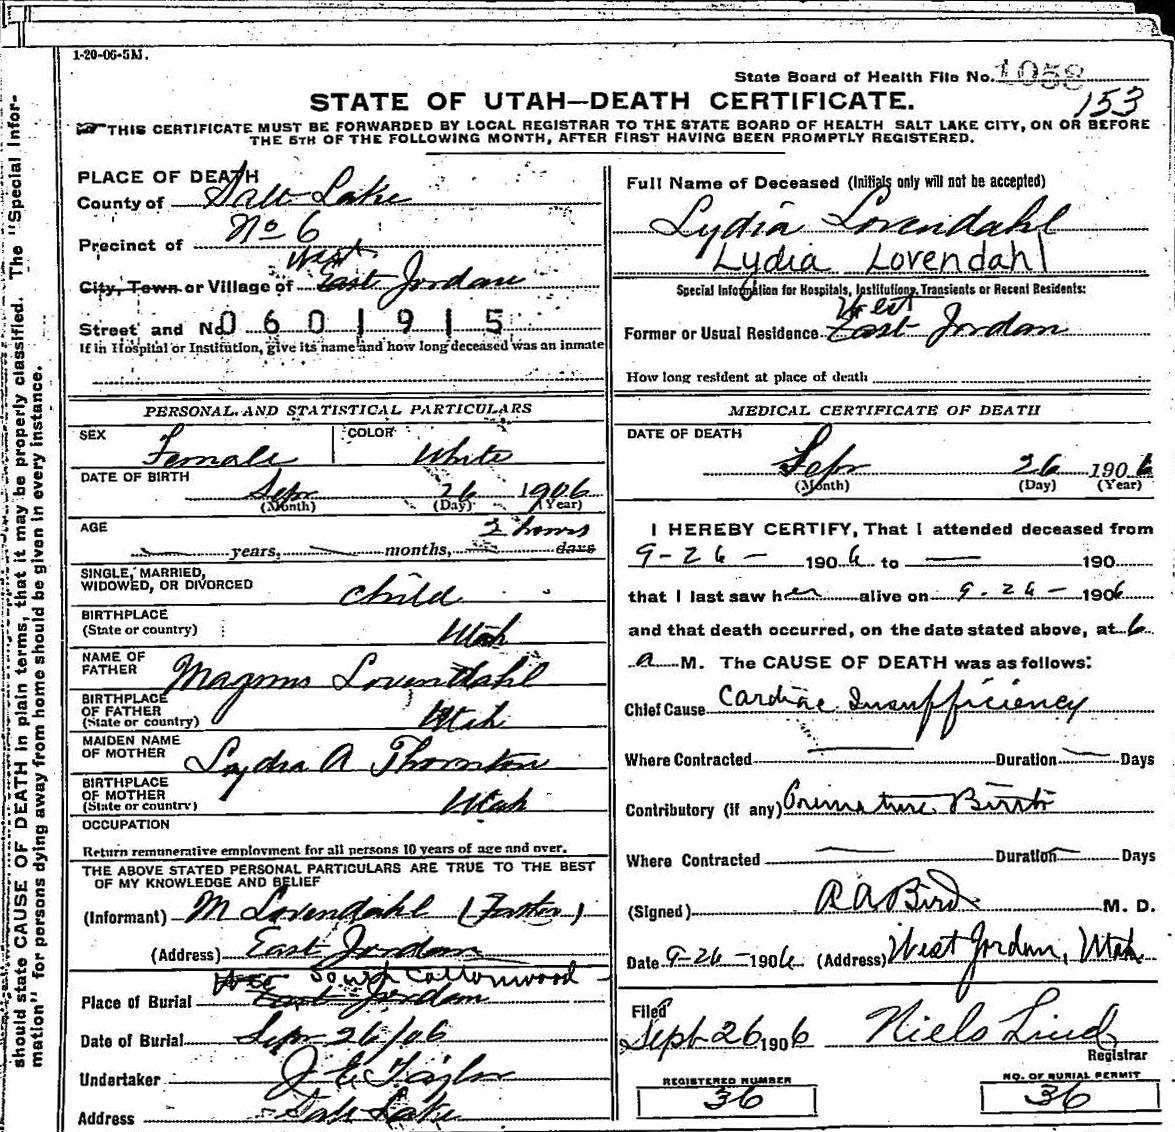 1-20-06-5M.
State Board of Health File No. 1058
153
STATE OF UTAH—DEATH CERTIFICATE.
THIS CERTIFICATE MUST BE FORWARDED BY LOCAL REGISTRAR TO THE STATE BOARD OF HEALTH SALT LAKE CITY, ON OR BEFORE
THE 5TH OF THE FOLLOWING MONTH, AFTER FIRST HAVING BEEN PROMPTLY REGISTERED.
should state CAUSE OF DEATH in plain terms, that it may be properly classified. The "Special Infor-
mation" for persons dying away from home should be given in every instance.
PLACE OF DEATH
County of Salt Lake
Precinct of No 6
West
City, Town or Village of East Jordan
Street and No. 0601915
If in Hospital or Institution, give its name and how long deceased was an inmate
Full Name of Deceased (Initials only will not be accepted)
Lydia Lovendahl
Lydia Lovendahl
Special Information for Hospitals, Institutions, Transients or Recent Residents:
West
Former or Usual Residence East Jordan
How long resident at place of death
PERSONAL AND STATISTICAL PARTICULARS
SEX Female COLOR White
DATE OF BIRTH
Sepr 26 1906
(Month) (Day) (Year)
AGE 2 hours
years, months, days
SINGLE, MARRIED,
WIDOWED, OR DIVORCED child
BIRTHPLACE
(State or country) Utah
NAME OF
FATHER Magnus Lovendahl
BIRTHPLACE
OF FATHER
(State or country) Utah
MAIDEN NAME
OF MOTHER Lydia A Thornton
BIRTHPLACE
OF MOTHER
(State or country) Utah
OCCUPATION
Return remunerative employment for all persons 10 years of age and over.
THE ABOVE STATED PERSONAL PARTICULARS ARE TRUE TO THE BEST
OF MY KNOWLEDGE AND BELIEF
(Informant) M Lovendahl (Father)
(Address) East Jordan
West South Cottonwood
Place of Burial East Jordan
Date of Burial Sepr 26/06
Undertaker J E Taylor
Address Salt Lake
MEDICAL CERTIFICATE OF DEATH
DATE OF DEATH
Sepr 26 1906
(Month) (Day) (Year)
I HEREBY CERTIFY, That I attended deceased from
9-26- 1906 to — 190
that I last saw her alive on 9-26- 1906
and that death occurred, on the date stated above, at 6
a M. The CAUSE OF DEATH was as follows:
Chief Cause Cardiac Insufficiency
Where Contracted — Duration — Days
Contributory (if any) Premature Birth
Where Contracted — Duration — Days
(Signed) R A Bird M. D.
Date 9-26-1906 (Address) West Jordan, Utah
Filed
Sept 26 1906 Niels Lind
Registrar
REGISTERED NUMBER
36
NO. OF BURIAL PERMIT
36